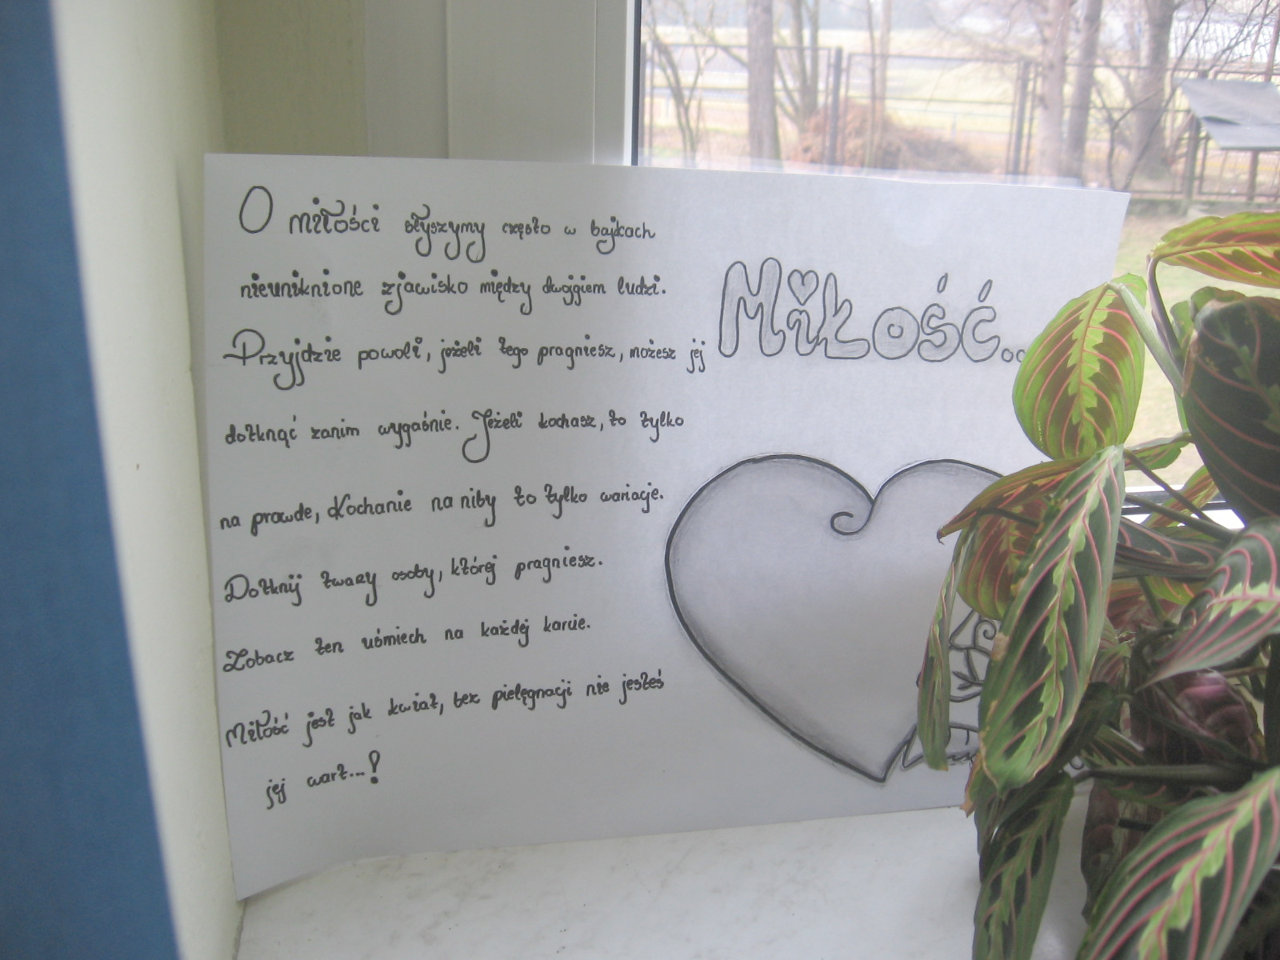 O miłości słyszymy często w bajkach
nieuniknione zjawisko między dwojgiem ludzi.
Przyjdzie powoli, jeżeli tego pragniesz, możesz jej
dotknąć zanim wygaśnie. Jeżeli kochasz, to tylko
na prawde, Kochanie na niby to tylko wariacje.
Dotknij twarzy osoby, której pragniesz.
Zobacz ten uśmiech na każdej karcie.
Miłość jest jak kwiat, bez pielęgnacji nie jesteś
jej wart...!
Miłość...